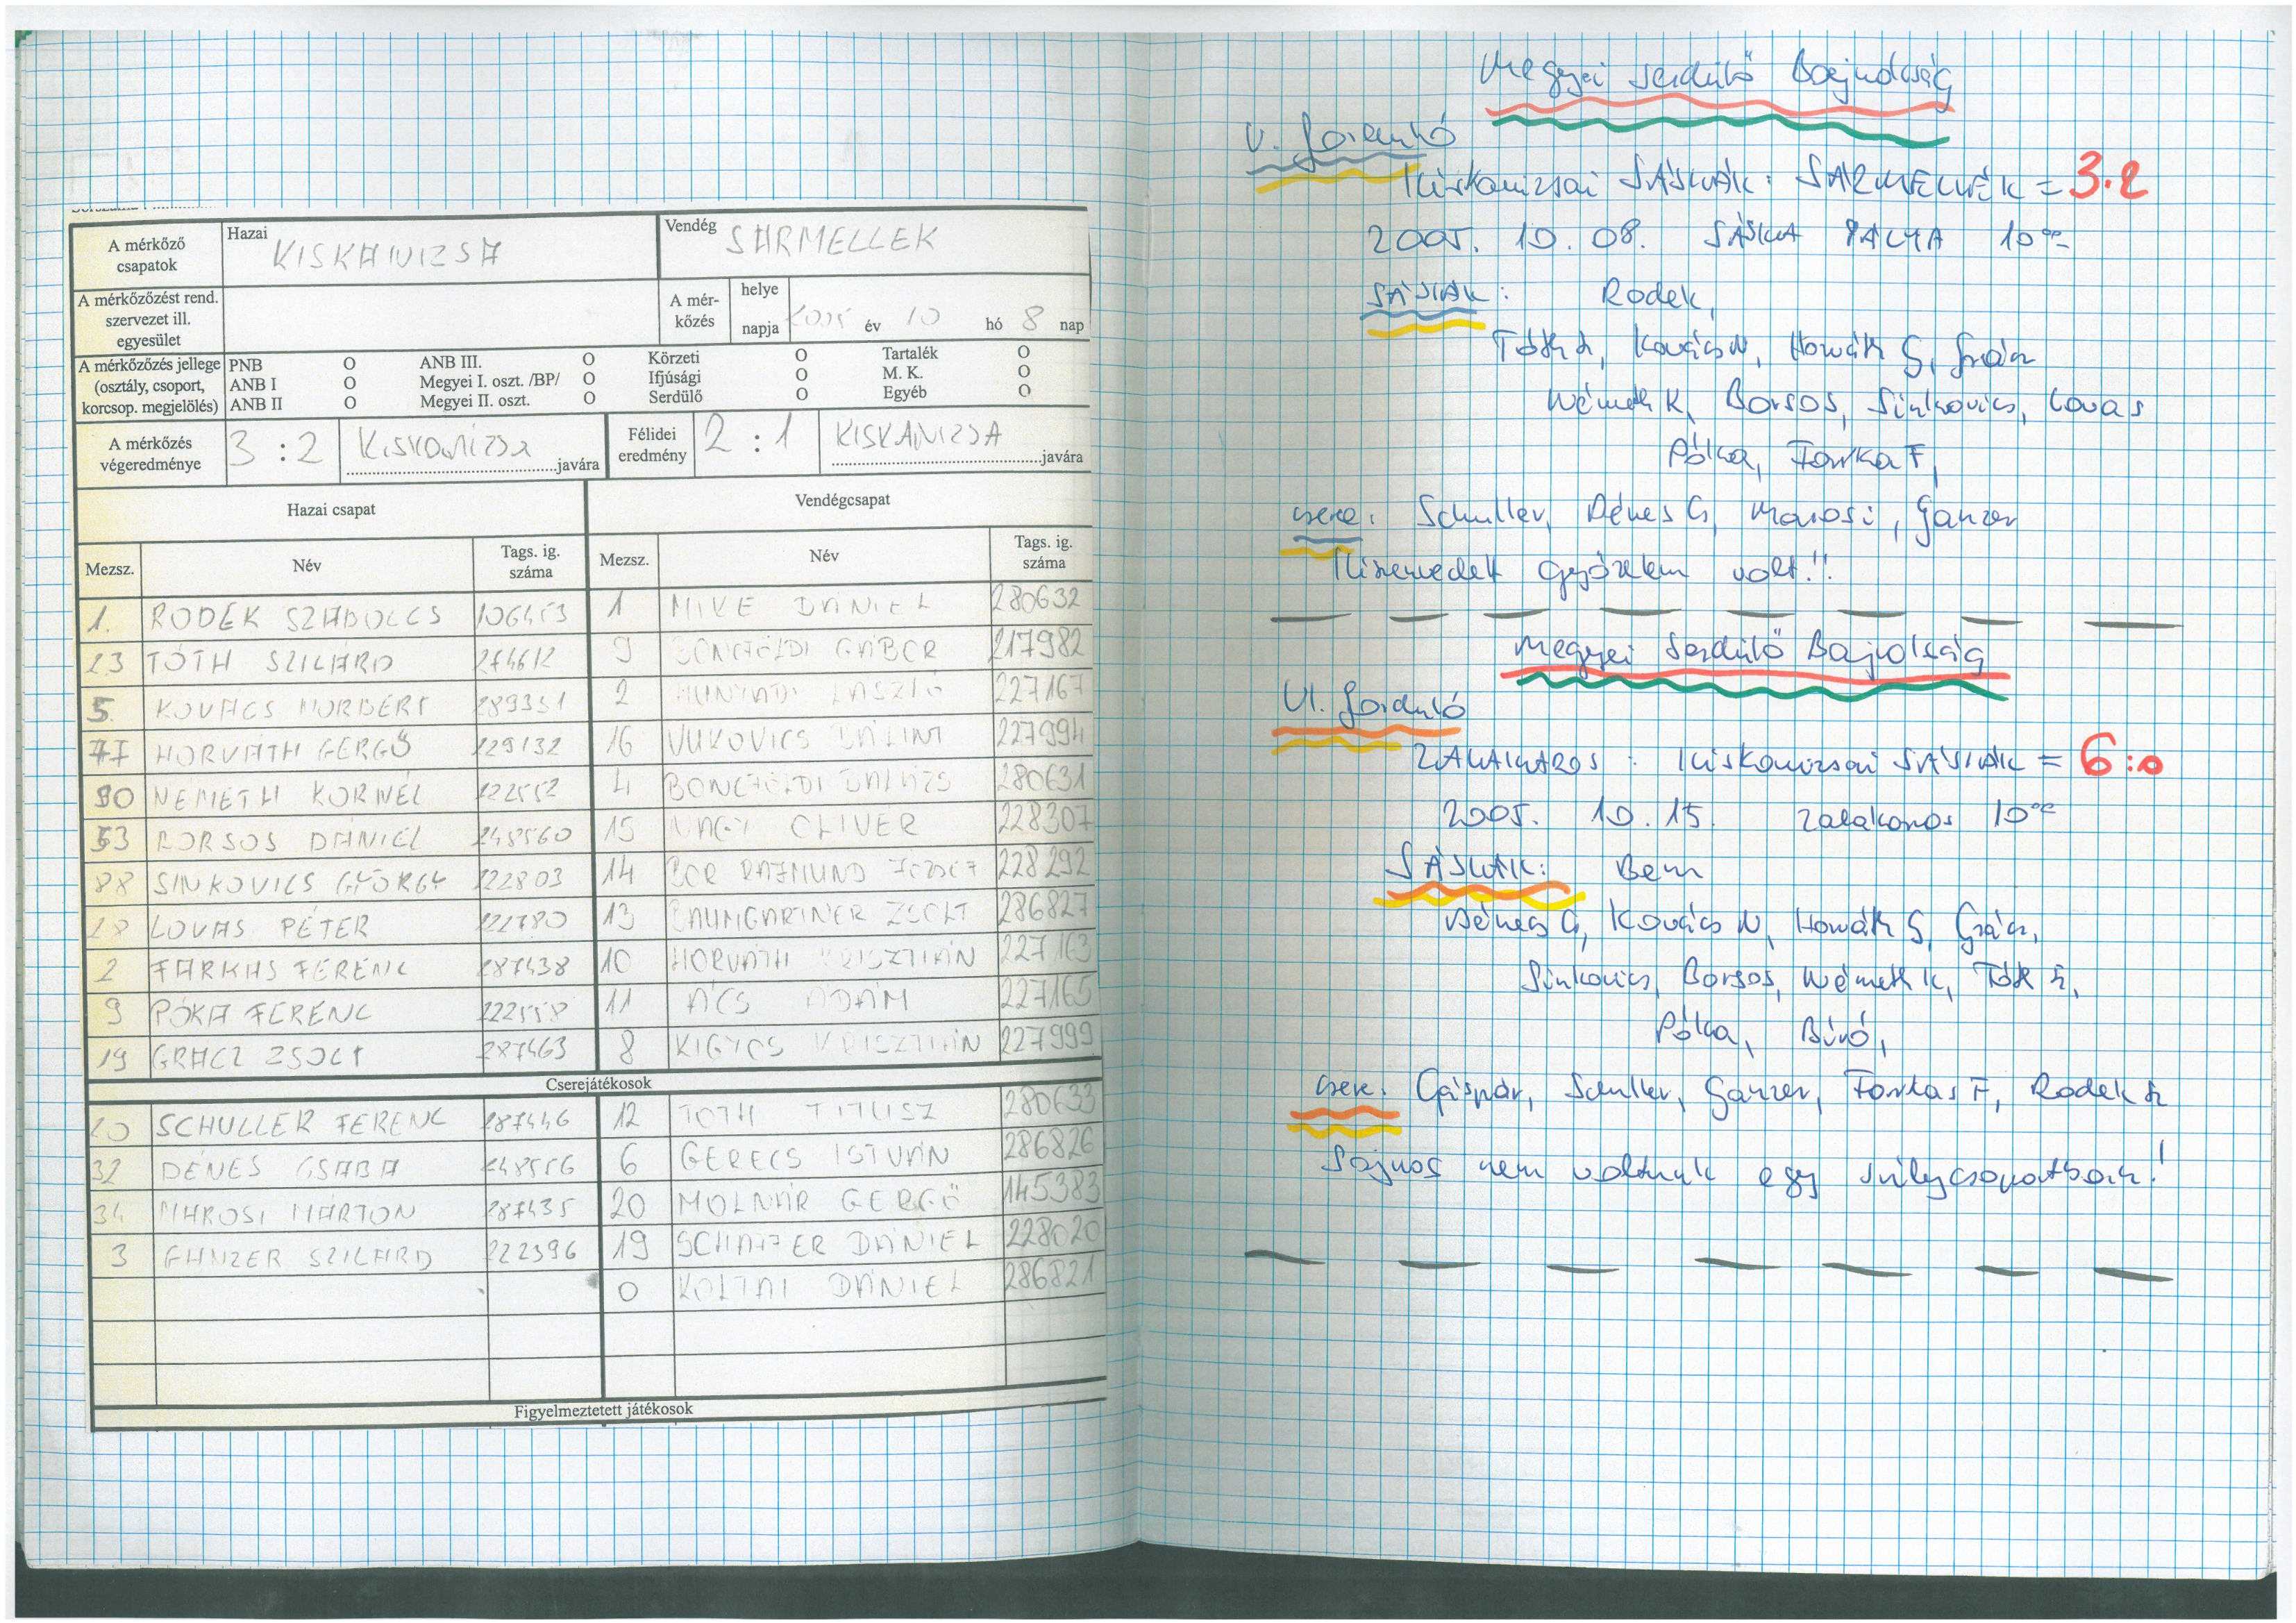 A mérkőző csapatok
Hazai KISKANIZSA
Vendég SÁRMELLÉK
A mérkőzőzést rend. szervezet ill. egyesület
A mérkőzés helye
napja 2005 év 10 hó 8 nap
A mérkőzőzés jellege (osztály, csoport, korcsop. megjelölés)
PNB O ANB III. O Körzeti O Tartalék O
ANB I O Megyei I. oszt. /BP/ O Ifjúsági O M. K. O
ANB II O Megyei II. oszt. O Serdülő O Egyéb O
A mérkőzés végeredménye 3 : 2 Kiskanizsa javára Félidei eredmény 2 : 1 KISKANIZSA javára
Hazai csapat Vendégcsapat
Mezsz. Név Tags. ig. száma Mezsz. Név Tags. ig. száma
1. RODEK SZABOLCS 106453 1 MIKE DÁNIEL 280632
23 TÓTH SZILÁRD 274612 9 BÖNCFÖLDI GÁBOR 217982
5. KOVÁCS NORBERT 289351 2 HUNYADI LÁSZLÓ 227167
77 HORVÁTH GERGŐ 229132 16 VUKOVICS BÁLINT 227994
90 NÉMETH KORNÉL 222552 4 BÖNCFÖLDI BALÁZS 280631
53 BORSOS DÁNIEL 248560 15 NAGY OLIVER 228307
88 SINKOVICS GYÖRGY 222803 14 BOR RAJMUND JÓZSEF 228292
28 LOVAS PÉTER 222780 13 BAUMGARTNER ZSOLT 286827
2 FARKAS FERENC 287438 10 HORVÁTH KRISZTIÁN 227163
9 PÓKA FERENC 222558 11 ÁCS ÁDÁM 227165
19 GRÁCZ ZSOLT 287463 8 KIGYÓS KRISZTIÁN 227999
Cserejátékosok
20 SCHULLER FERENC 287446 12 TÓTH TITUSZ 280633
32 DÉNES CSABA 248556 6 GERECS ISTVÁN 286826
34 MAROSI MÁRTON 287435 20 MOLNÁR GERGŐ 145383
3 GANZER SZILÁRD 222396 19 SCHAFFER DÁNIEL 228020
0 KOLTAI DÁNIEL 286821
Figyelmeztetett játékosok
Megyei Serdülő Bajnokság
V. forduló
Kiskanizsai SÁSKÁK : SÁRMELLÉK = 3:2
2005. 10. 08. SÁSKA PÁLYA 10⁰⁰
SÁSKÁK: Rodek,
Tóth Sz, Kovács N, Horváth G, Grácz
Németh K, Borsos, Sinkovics, Lovas
Póka, Farkas F,
csere: Schuller, Dénes Cs, Marosi, Ganzer
Kiszenvedett győzelem volt!!
Megyei Serdülő Bajnokság
VI. forduló
ZALAKAROS : Kiskanizsai SÁSKÁK = 6:0
2005. 10. 15. Zalakaros 10⁰⁰
SÁSKÁK: Bem
Dénes Cs, Kovács N, Horváth G, Grácz,
Sinkovics, Borsos, Németh K, Tóth Sz,
Póka, Bíró,
csere: Gáspár, Schuller, Ganzer, Farkas F, Rodek Sz
Sajnos nem voltunk egy súlycsoportban!